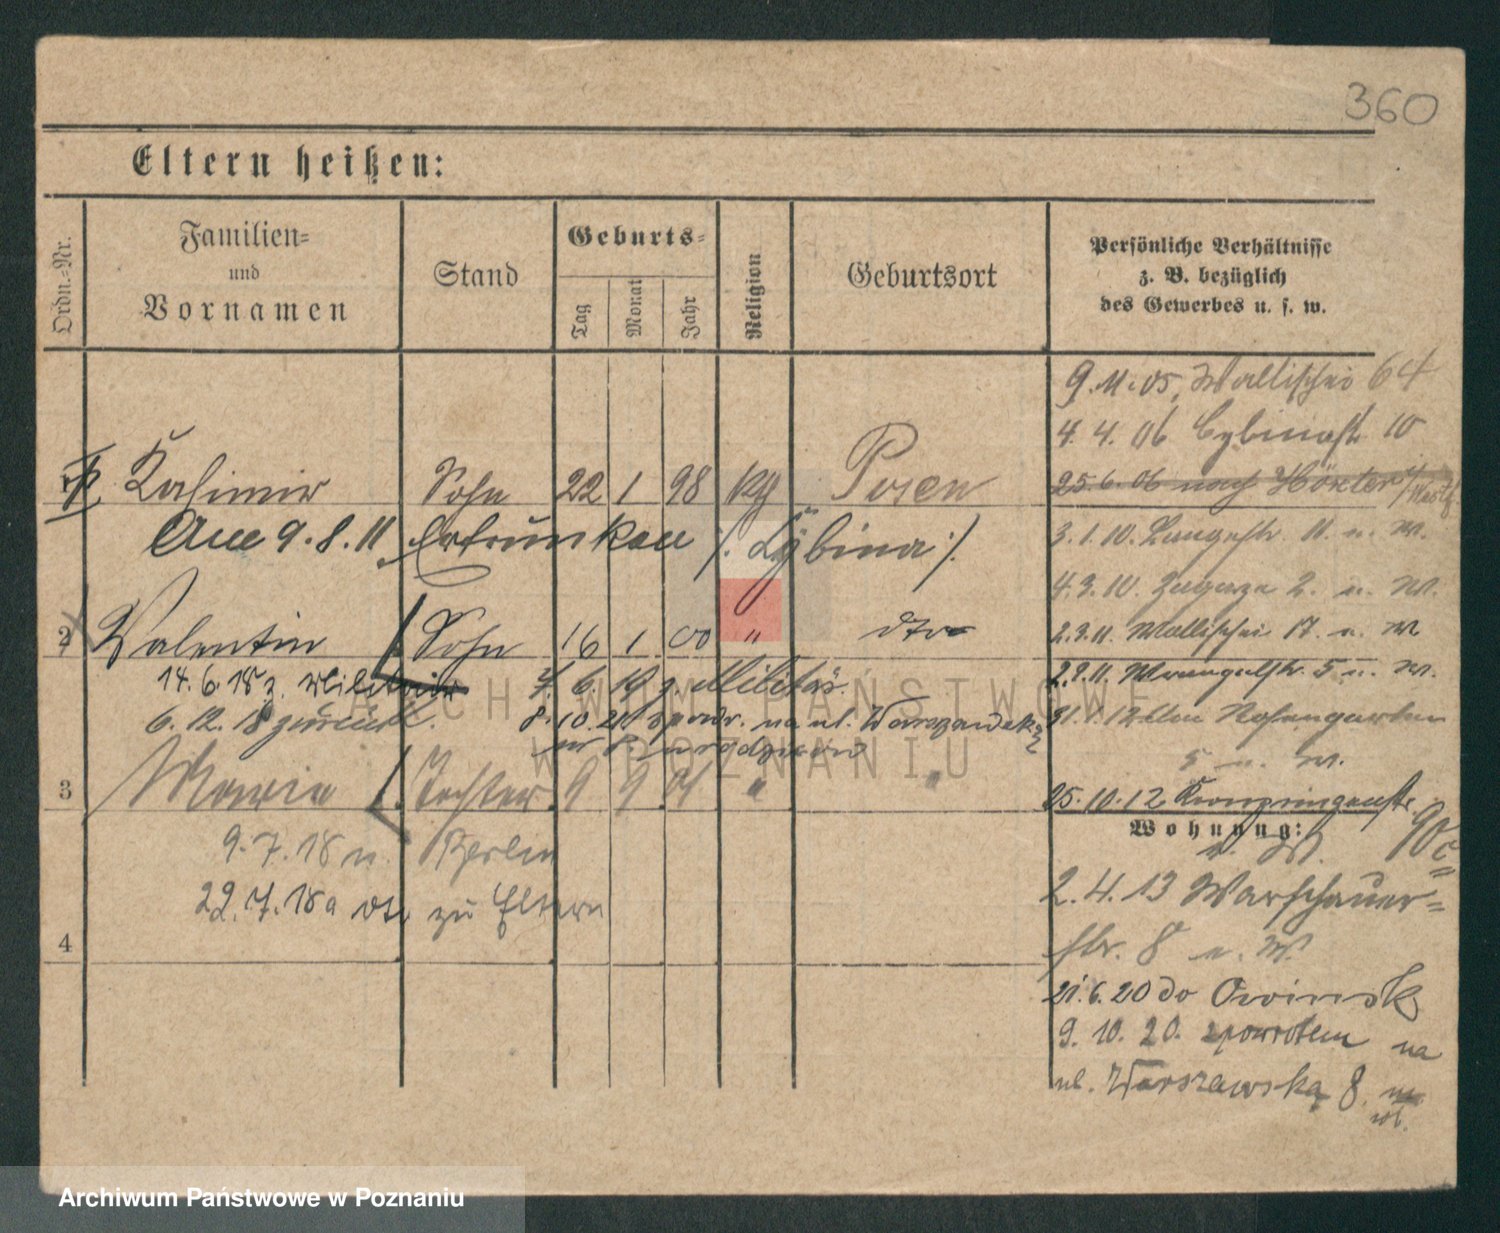 360
Eltern heißen:
Ordn.-Nr.
Familien-
und
Vornamen
Stand
Geburts-
Tag
Monat
Jahr
Religion
Geburtsort
Persönliche Verhältnisse
z. B. bezüglich
des Gewerbes u. s. w.
9.11.05, Wallischei 64
4.4.06 Cybinastr 10
Kasimir Sohn 22 1 98 Posen
25.6.06 nach Höxter
Am 9.8.11 Ertrunken /. Cybina ./
3.1.10. Langestr. 11. u. W.
4.3.10. Zagorze 2. u. W.
2 Valentin Sohn 16 1 00 " dto
2.3.11. Wallischei 17. u. W
14.6.18 z. Militair 6. 19 z. Militär.
2.9.11. Wrangelstr. 5 u. W.
6.12.18 zurück. 8.10.21 na ul. Warszawską
Am Rosengarten
5 u. W.
3 Maria Tochter 9 9 04 " "
25.10.12 Kronprinzenstr.
Wohnung:
90c
u. W.
9.7.18 n. Berlin
22.7.18 zu Eltern
2.4.13 Warschauer-
str. 8 u. W.
4
21.6.20 do Owinsk
9.10.20. zpowrotem na
ul. Warszawską 8.
ARCHIWUM PAŃSTWOWE
W POZNANIU
Archiwum Państwowe w Poznaniu